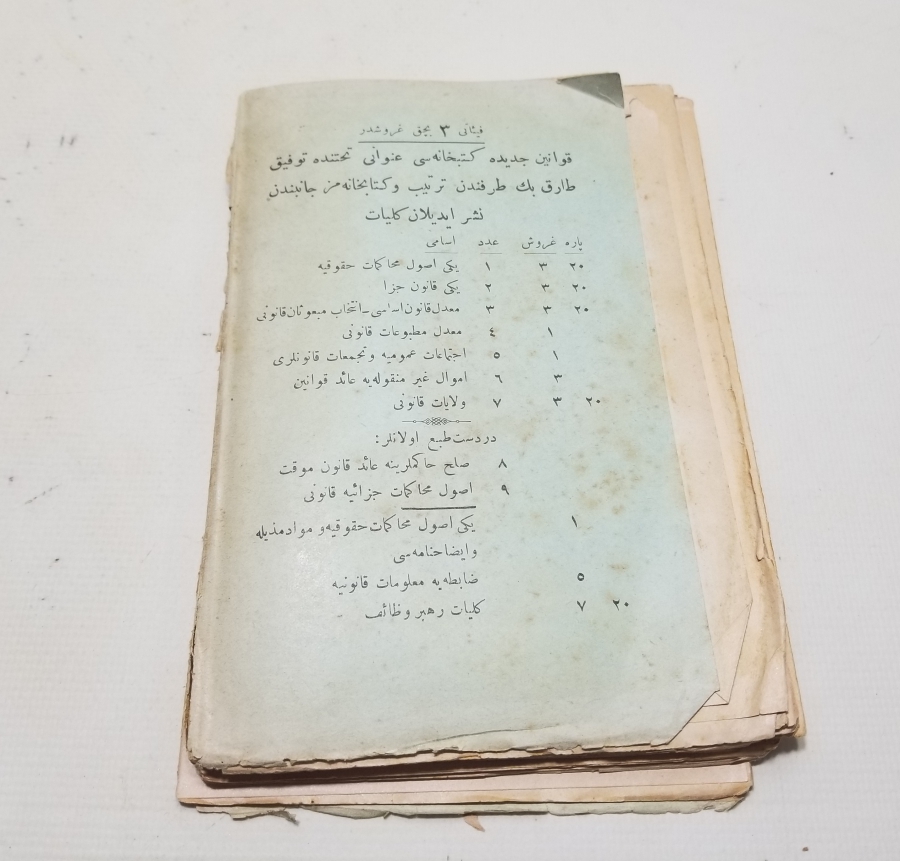 فیئاتی ٣ بچق غروشدر
قوانین جدیده کتبخانه‌سی عنوانی تحتنده توفیق
طارق بك طرفندن ترتیب وکتابخانه‌مز جانبندن
نشر ایدیلان کلیات
پاره غروش عدد اسامی
٢٠ ٣ ١ یکی اصول محاکمات حقوقیه
٢٠ ٣ ٢ یکی قانون جزا
٢٠ ٣ ٣ معدل قانون اساسی ـ انتخاب مبعوثان قانونی
١ ٤ معدل مطبوعات قانونی
١ ٥ اجتماعات عمومیه وتجمعات قانونلری
٣ ٦ اموال غیر منقوله‌یه عائد قوانین
٢٠ ٣ ٧ ولایات قانونی
دردست طبع اولانلر:
٨ صلح حاکملرینه عائد قانون موقت
٩ اصول محاکمات جزائیه قانونی
١ یکی اصول محاکمات حقوقیه و مواد مذیله
وایضاحنامه‌سی
٥ ضابطه‌یه معلومات قانونیه
٢٠ ٧ کلیات رهبر وظائف